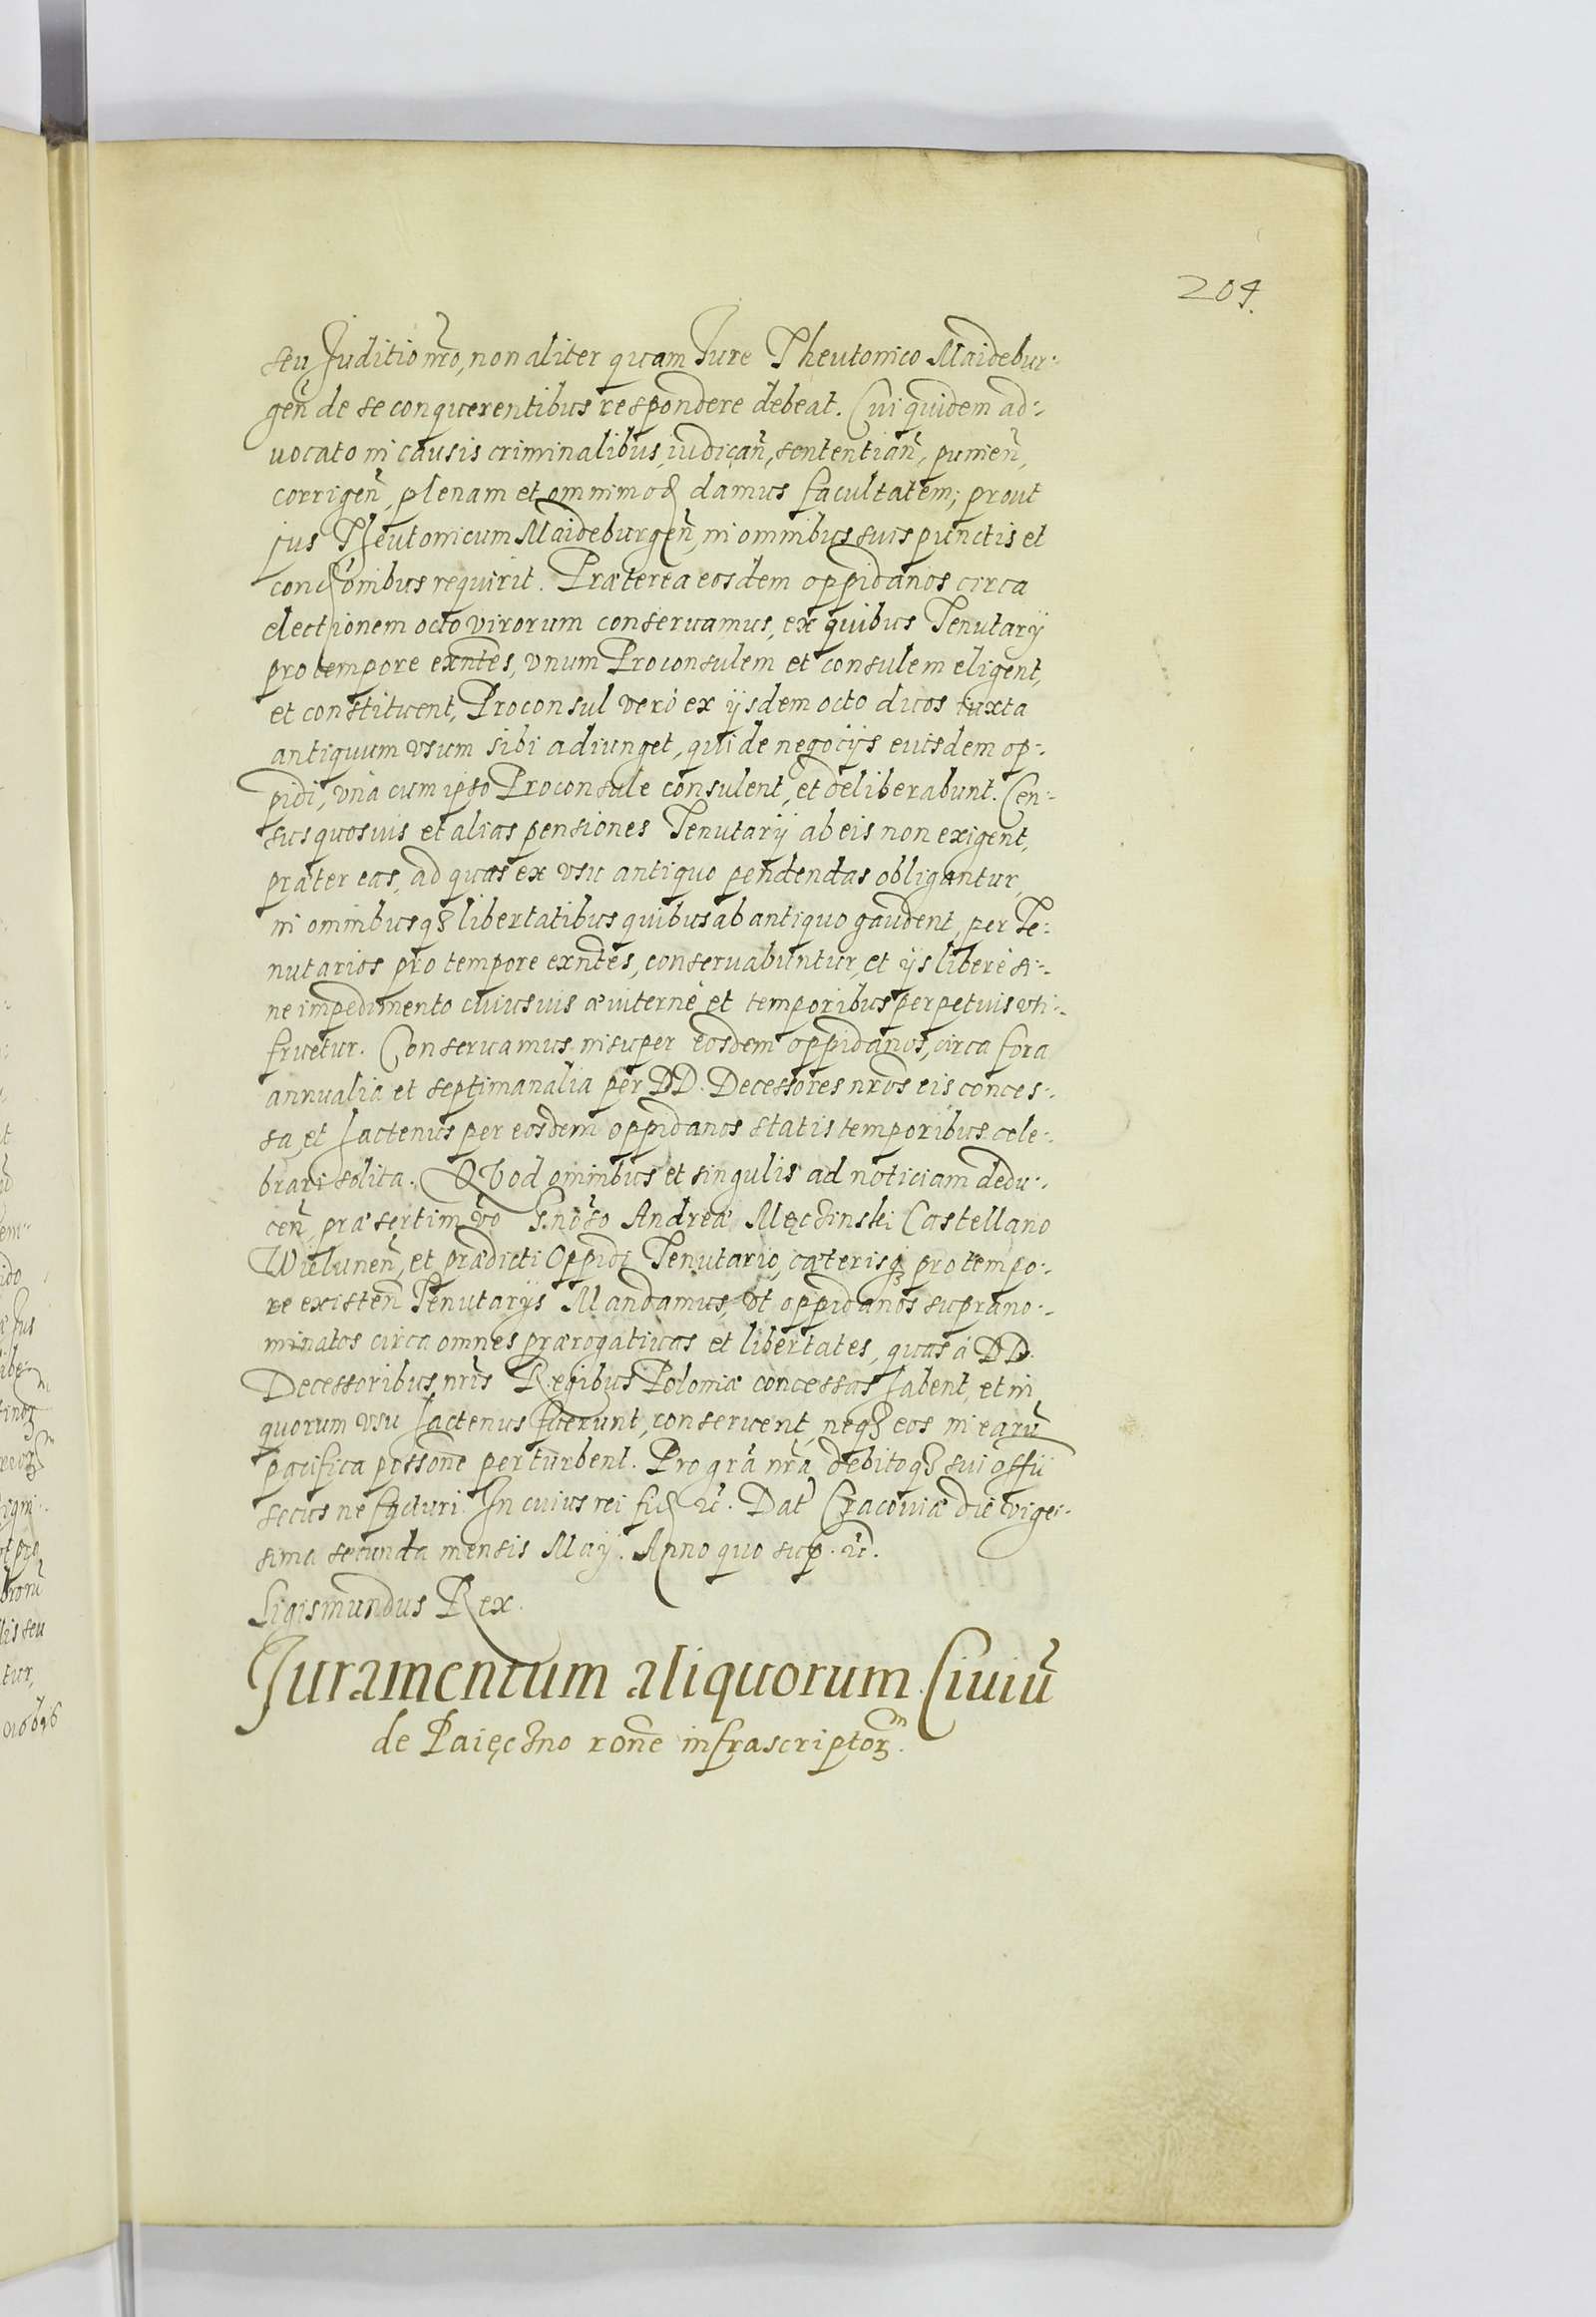 204.
seu Juditio nr̃o, non aliter quam Jure Theutonico Maidebur-
geñ de se conquerentibus respondere debeat. Cui quidem ad-
uocato in causis criminalibus, iudicañ, sententiañ, punieñ,
corrigeñ, plenam et omnimod damus facultatem; prout
jus Theutonicum Maideburgeñ, in omnibus suis punctis et
condõnibus requirit. Præterea eosdem oppidanos circa
electionem octo virorum conseruamus, ex quibus Tenutarÿ
pro tempore exñtes, vnum Proconsulem et consulem eligent,
et constituent, Proconsul verò ex ijsdem octo duos iuxta
antiquum vsum sibi adiunget, qui de negocijs eiusdem op-
pidi, vnà cum ipso Proconsule consulent, et deliberabunt. Cen-
sus quosuis et alias pensiones Tenutarij ab eis non exigent,
præter eas, ad quas ex vsu antiquo pendendas obligantur,
in omnibusq3 libertatibus quibus ab antiquo gaudent, per Te-
nutarios pro tempore exñtes, conseruabuntur, et ijs liberè si-
ne impedimento cuiusuis æuiternè et temporibus perpetuis vti-
fruetur. Conseruamus insuper eosdem oppidanos, circa fora
annualia et septimanalia per DD. Decessores nr̃os eis conces-
sa, et hactenus per eosdem oppidanos statis temporibus cele-
brari solita. QVod omnibus et singulis ad noticiam dedu-
ceñ, præsertim v̄o G.noso Andreæ Męczinski Castellano
Wieluneñ, et prædicti Oppidi Tenutario, cæterisq3 pro tempo-
re existeñ Tenutarijs Mandamus, vt oppidanos suprano-
minatos circa omnes prærogatiuas et libertates, quas à DD.
Decessoribus nr̃is Regibus Poloniæ concessas habent, et in
quorum vsu hactenus fuerunt, conseruent, neq3 eos in earũ
pacifica possõne perturbent. Pro gr̃a nr̃a, debitoq3 sui offij
secus ne facturi. In cuius rei fid ꝛc̃. Dat̃ Cracouiæ die vige-
sima secunda mensis Maij. Anno quo sup. ꝛc̃.
Sigismundus Rex.
Juramentum aliquorum Ciuiũ
de Paięczno rõne infrascriptorꝫ.